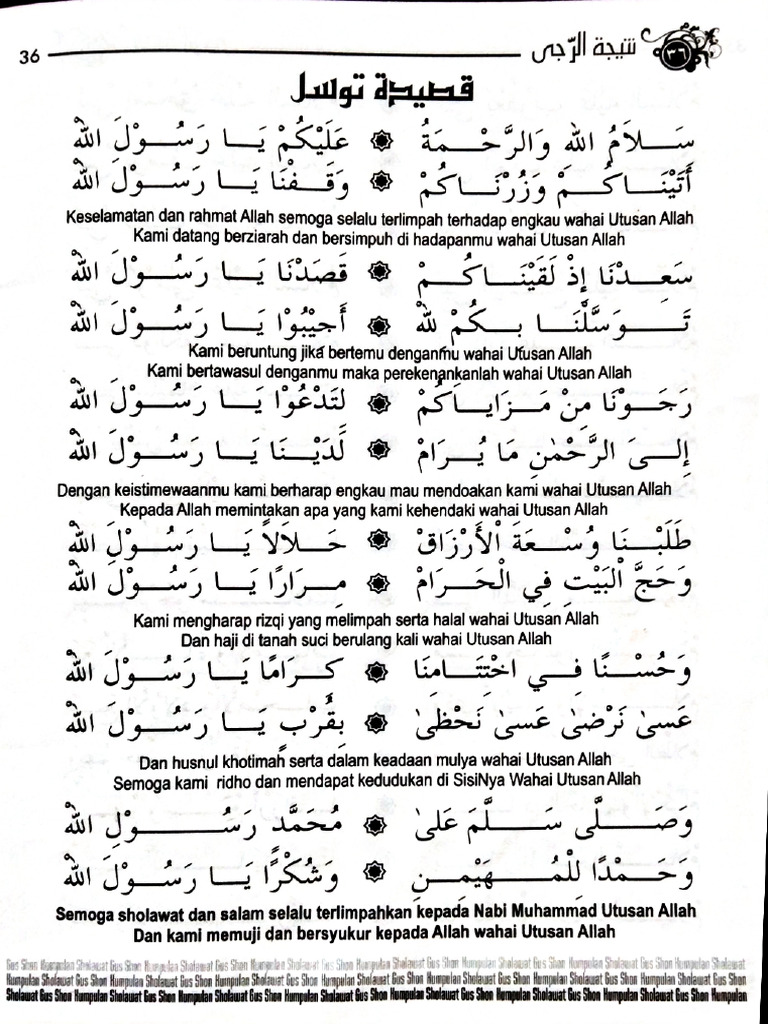 36 نتيجة الرّجى ٣٦
قصيدة توسل
سَلَامُ الله وَالرَّحْمَةُ ۞ عَلَيْكُمْ يَا رَسُوْلَ الله
أَتَيْنَاكُمْ وَزُرْنَاكُمْ ۞ وَقَفْنَا يَا رَسُوْلَ الله
Keselamatan dan rahmat Allah semoga selalu terlimpah terhadap engkau wahai Utusan Allah
Kami datang berziarah dan bersimpuh di hadapanmu wahai Utusan Allah
سَعِدْنَا إِذْ لَقَيْنَاكُمْ ۞ قَصَدْنَا يَا رَسُوْلَ الله
تَوَسَّلْنَا بِكُمْ لله ۞ أَجِيْبُوْا يَا رَسُوْلَ الله
Kami beruntung jika bertemu denganmu wahai Utusan Allah
Kami bertawasul denganmu maka perekenankanlah wahai Utusan Allah
رَجَوْنَا مِنْ مَزَايَاكُمْ ۞ لِتَدْعُوْا يَا رَسُوْلَ الله
إِلىَ الرَّحْمٰنِ مَا يُرَامْ ۞ لَدَيْنَا يَا رَسُوْلَ الله
Dengan keistimewaanmu kami berharap engkau mau mendoakan kami wahai Utusan Allah
Kepada Allah memintakan apa yang kami kehendaki wahai Utusan Allah
طَلَبْنَا وُسْعَةَ الْأَرْزَاقْ ۞ حَلَالاً يَا رَسُوْلَ الله
وَحَجَّ الْبَيْتِ فِي الْحَرَامْ ۞ مِرَارًا يَا رَسُوْلَ الله
Kami mengharap rizqi yang melimpah serta halal wahai Utusan Allah
Dan haji di tanah suci berulang kali wahai Utusan Allah
وَحُسْنًا فِي اخْتِتَامِنَا ۞ كِرَامًا يَا رَسُوْلَ الله
عَسىَ نَرْضىٰ عَسىَ نَحْظىٰ ۞ بِقُرْبٍ يَا رَسُوْلَ الله
Dan husnul khotimah serta dalam keadaan mulya wahai Utusan Allah
Semoga kami ridho dan mendapat kedudukan di SisiNya Wahai Utusan Allah
وَصَلَّى سَلَّمَ عَلىَ ۞ مُحَمَّد رَسُوْلِ الله
وَحَمْدًا لِلْمُهَيْمِنِ ۞ وَشُكْرًا يَا رَسُوْلَ الله
Semoga sholawat dan salam selalu terlimpahkan kepada Nabi Muhammad Utusan Allah
Dan kami memuji dan bersyukur kepada Allah wahai Utusan Allah
Gus Shon Humpulan Sholawat Gus Shon Humpulan Sholawat Gus Shon Humpulan Sholawat Gus Shon Humpulan Sholawat Gus Shon Humpulan Sholawat
Humpulan Sholawat Gus Shon Humpulan Sholawat Gus Shon Humpulan Sholawat Gus Shon Humpulan Sholawat Gus Shon Humpulan Sholawat Gus Shon Humpulan
Sholawat Gus Shon Humpulan Sholawat Gus Shon Humpulan Sholawat Gus Shon Humpulan Sholawat Gus Shon Humpulan Sholawat Gus Shon Humpulan